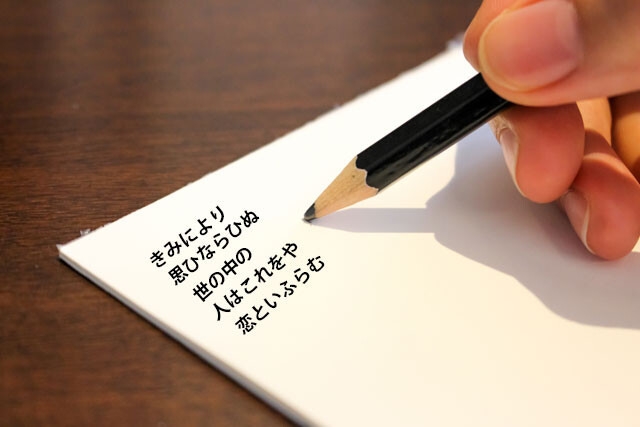 きみにより
思ひならひぬ
世の中の
人はこれをや
恋といふらむ